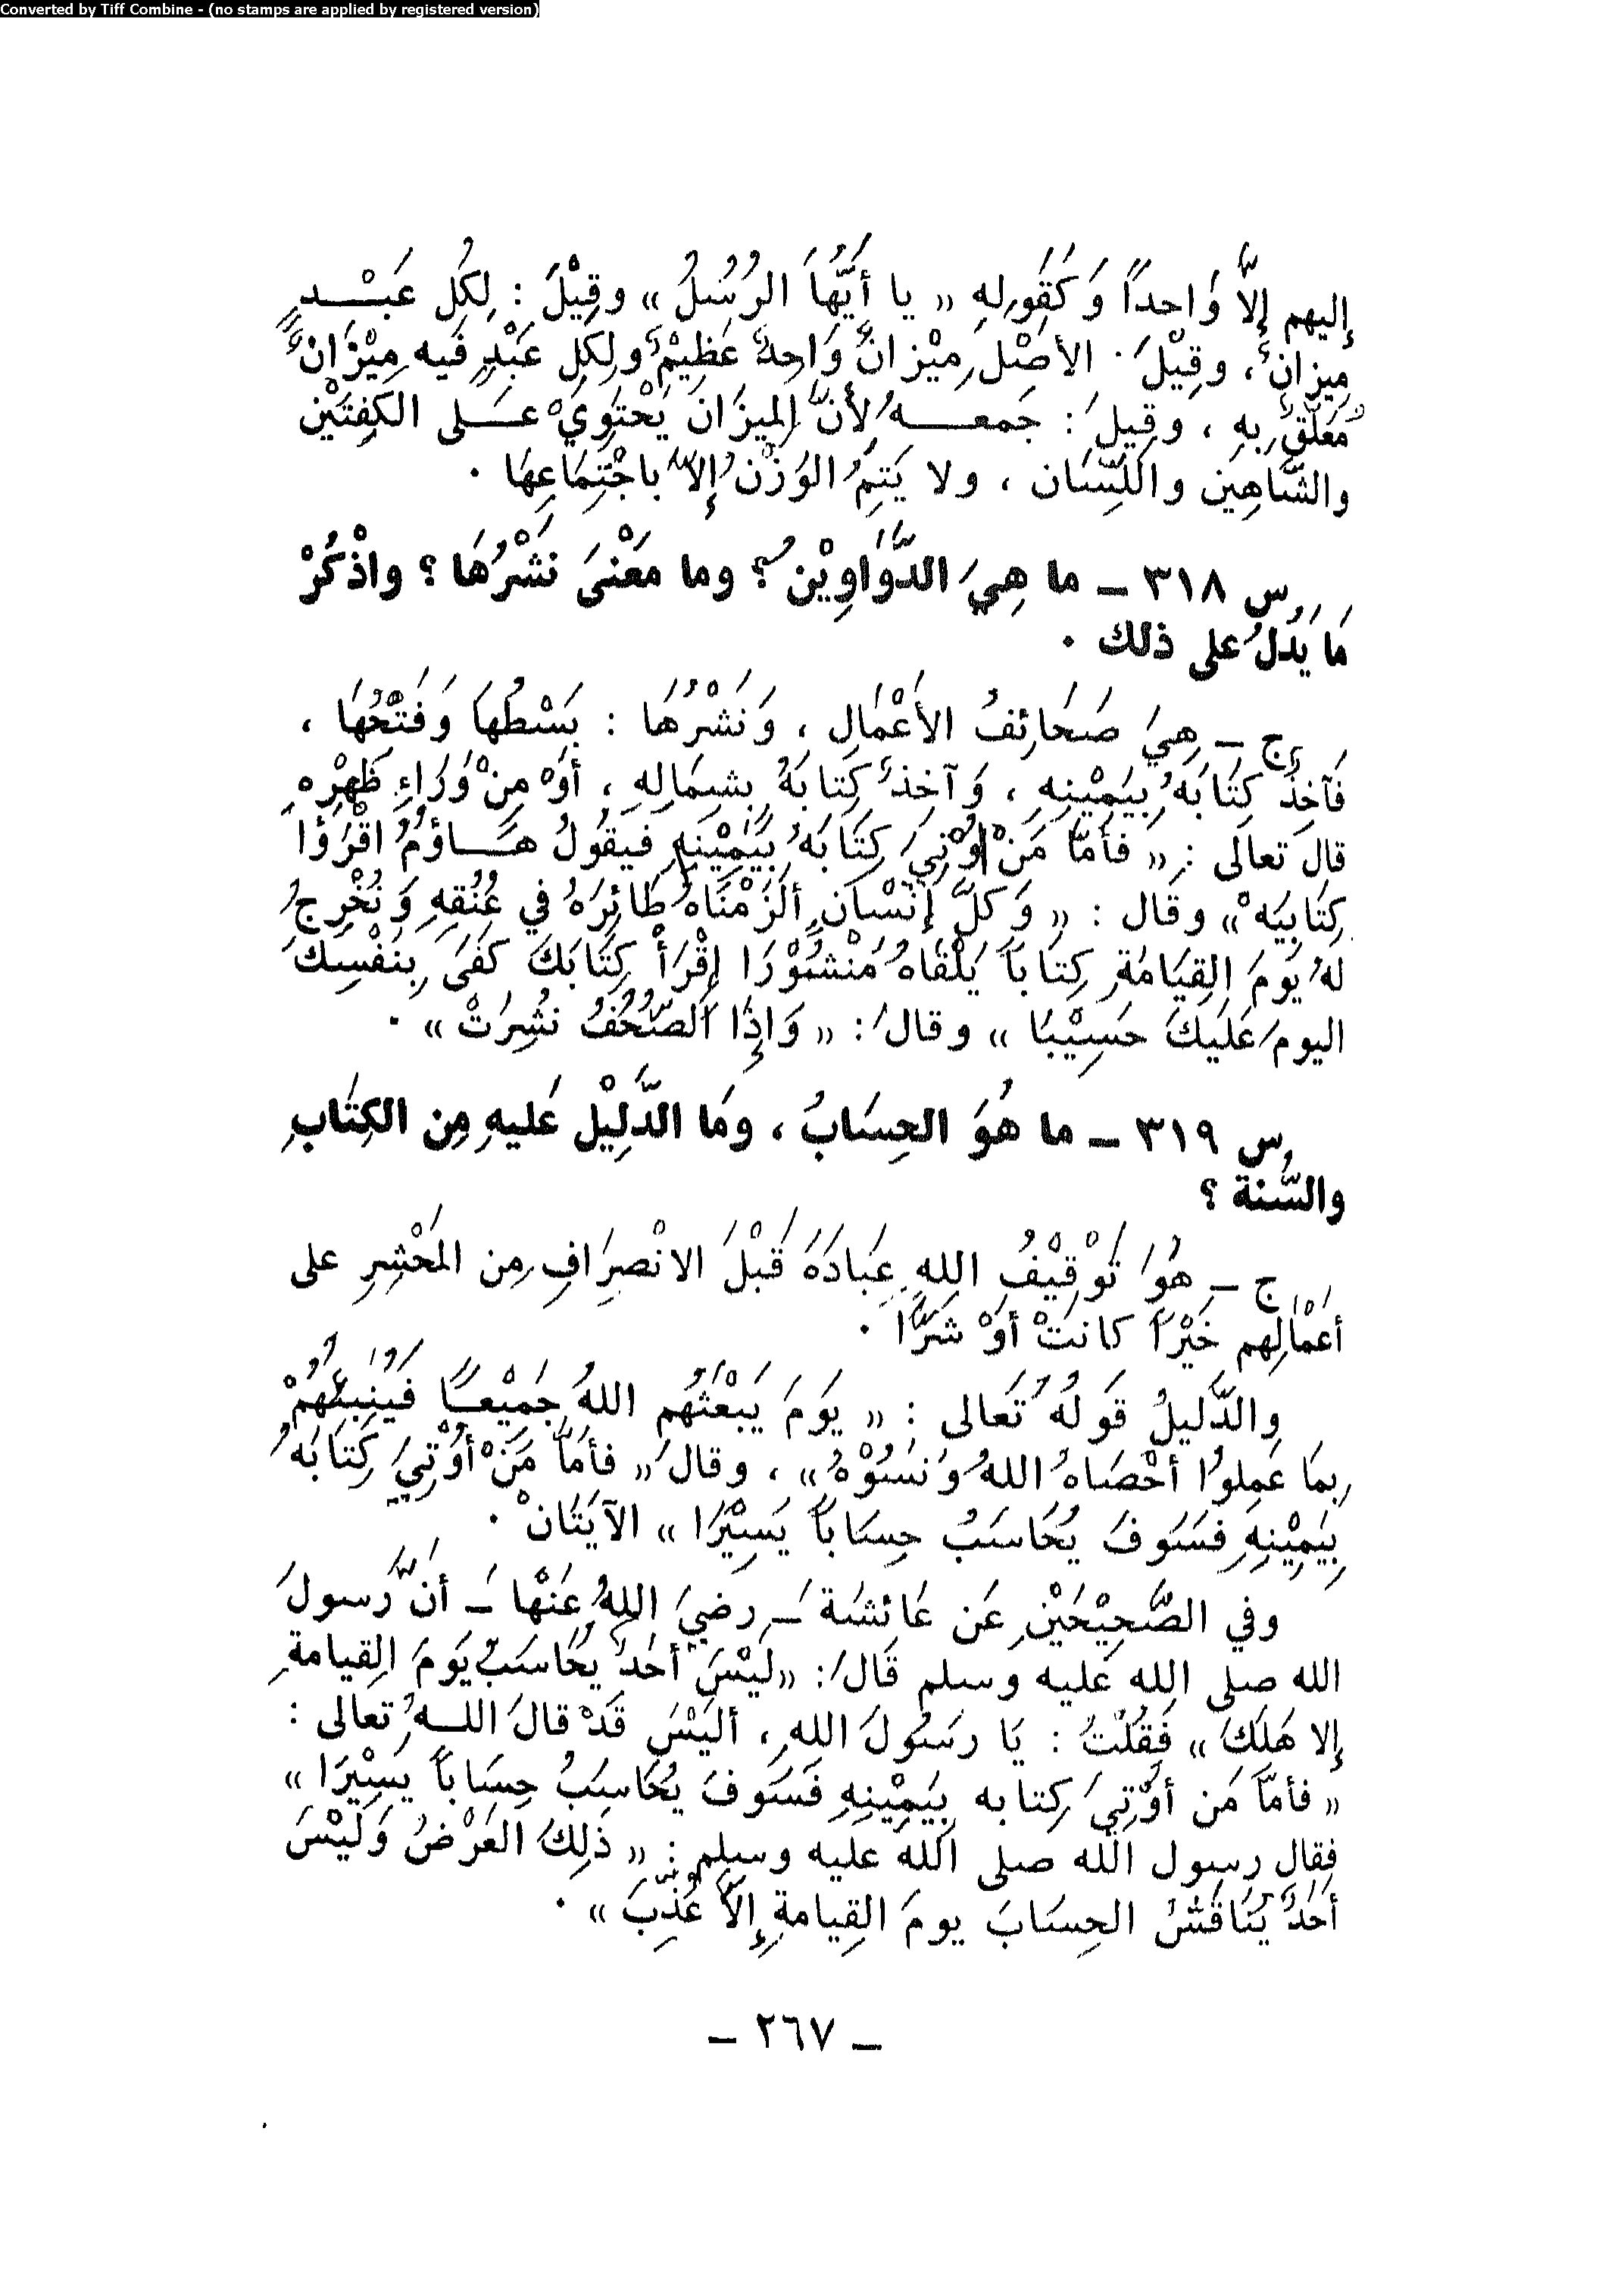 Converted by Tiff Combine - (no stamps are applied by registered version)
إليهم إلاَّ وَاحداً وَكَقَولِهِ « يا أَيُّهَا الرُسُلُ » وقِيْلَ : لِكُلِ عَبْـــدٍ
مِيزانٌ ، وقِيْلَ . الأصْلِ مِيْزانٌ وَاحِدٌ عَظِيْمٌ ولِكلِ عَبْدٍ فَيه مِيْزَانٌ
مُعَلَّقٌ بهِ ، وقِيلَ : جَمعـــهُ لأنَّ المِيزَانَ يَحْتَوِيْ عَـــلى الكفِتَيْن
والشَّاهِين واللِّسَان ، ولا يَتِمُ الوَزْنُ إلاَّ باجْتِمَاعِهَا .
س ٣١٨ ــ ما هِيَ الدَّوَاوِيْنُ ؟ وما مَعْنىَ نَشْرُهَا ؟ واذْكُرْ
مَا يَدَلُ على ذلك .
ج ــ هِيَ صَحَائِفُ الأَعْمَالِ ، وَنَشْرُهَا : بَسْطُهَا وَفَتْحُهَا ،
فَآخِذٌ كِتَابَهُ بِيَمِيْنِهِ ، وَآخِذٌ كِتابَهُ بِشِمَالِهِ ، أَوْ مِنْ وَرَاءِ ظَهْرِهِ
قالَ تَعالَى : « فَأَمَّا مَنْ اوْتِيَ كِتَابَهُ بِيَمِيْنِهِ فيقُولُ هَـــاؤمُ اقْرَؤُا
كِتَابِيَهْ » وقَال : « وَكلَّ إنْسْانٍ أَلْزَمْنَاهُ طَائِرَهُ في عُنُقِهِ وَنُخْرِجُ
لهُ يَوَمَ القِيَامَةِ كِتَاباً يَلْقَاهُ مَنْشُوْرَا إقْرَأْ كِتَابَكَ كَفَىَ بِنَفْسِكَ
اليومَ عَلَيكَ حَسِيْبًا » وقالَ : « وَإِذَا الصّحُفُ نُشِرَتْ » .
س ٣١٩ ــ ما هُوَ الحِسَابُ ، ومَا الدَّلِيْل عَليهِ مِن الكِتَابِ
والسُّنة ؟
ج ــ هُوَ تَوْقِيْفُ اللهِ عِبَادَهُ قَبْلَ الانْصِرَافِ مِن المَحْشِرِ على
أعْمَالِهم خَيْراً كانَتْ أَوْ شَرَّا .
والدَّلِيلُ قَولُهُ تَعالى : « يَومَ يَبْعَثُهُم اللهُ جَمِيْعـــاً فَيُنَبِئُهُمْ
بِمَا عَمِلوُا أحْصَاهُ اللهُ وَنَسُوْهُ » ، وقالَ « فأمَّا مَنْ أوْتِيَ كِتَابَهُ
بِيَمِيْنِهِ فسَوفَ يُحَاسَبُ حِسَاباً يَسِيْرَا » الآيَتَانْ .
وفي الصَّحِيْحَيْنِ عَن عَائشةَ ــ رضيَ اللهُ عَنْها ــ أنَّ رَسولَ
الله صلى الله عليه وسلم قَالَ : « لَيْسَ أحَدٌ يحُاسَبُ يَومَ القِيامةِ
إلا هَلَكَ » فَقُلْتُ : يَا رسُولَ اللهِ ، أليْسَ قَدْ قالَ اللـهُ تعالى :
« فأمَّا مَن أوُتِيَ كِتابه بِيَمِيْنِهِ فَسَوفَ يُحَاسَبُ حِسَاباً يَسِيْرَا »
فقال رسول الله صلى الله عليه وسلم : « ذَلِكَ العَرْضُ وَلَيْسَ
أحَدٌ يُنَاقَشُ الحِسَابَ يومَ القِيامةِ إلاَّ عُذِّبَ » .
ــ ٢٦٧ ــ